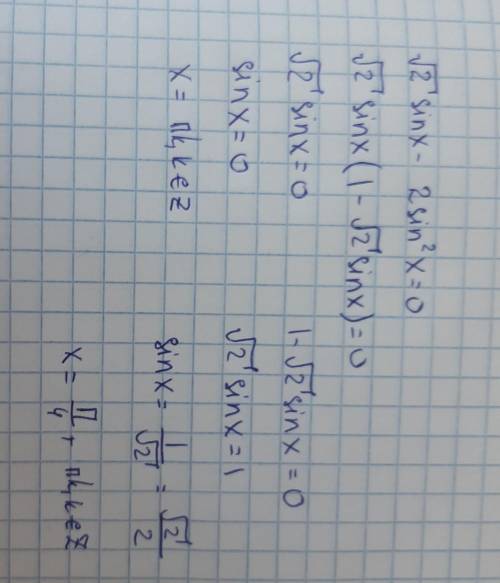 √2 sinx - 2sin²x = 0
√2 sinx (1 - √2 sinx) = 0
√2 sinx = 0
sinx = 0
x = πk, k ∈ Z
1 - √2 sinx = 0
√2 sinx = 1
sinx = 1/√2 = √2/2
x = π/4 + πk, k ∈ Z